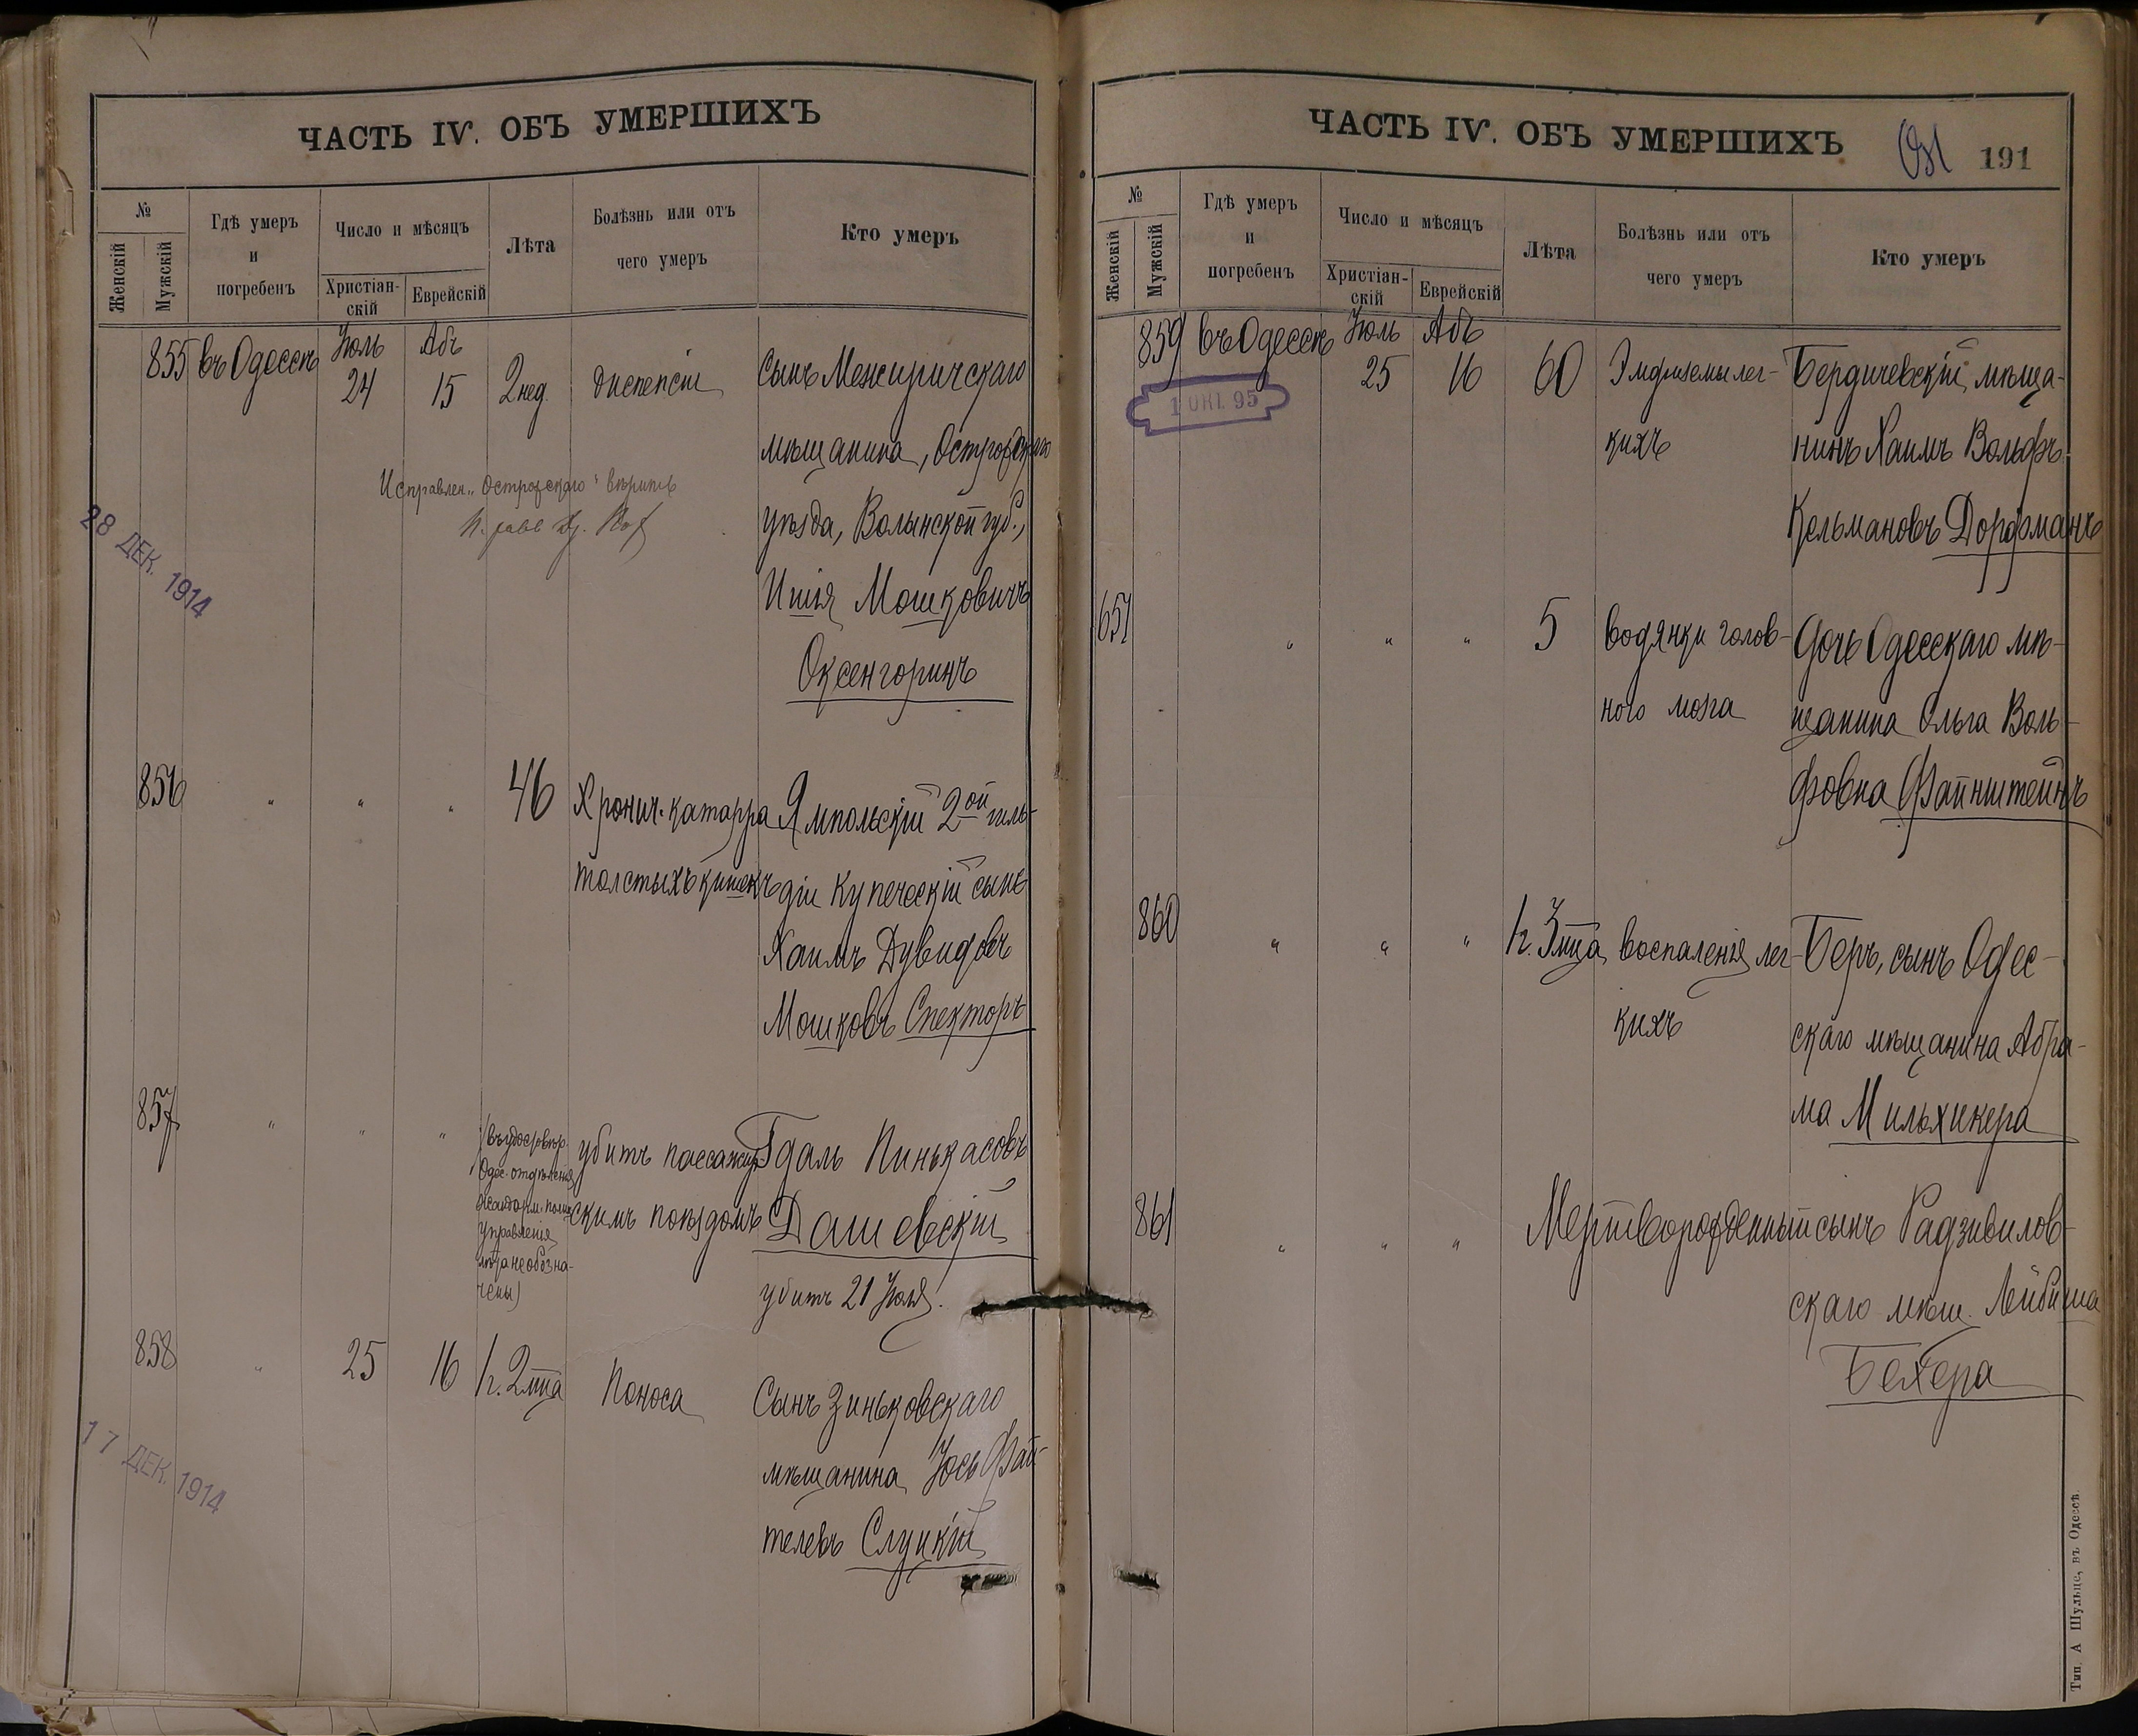 ЧАСТЬ IV. ОБЪ УМЕРШИХЪ
№
Женскій
Мужскій
Гдѣ умеръ
и
погребенъ
Число и мѣсяцъ
Христіан-
скій
Еврейскій
Лѣта
Болѣзнь или отъ
чего умеръ
Кто умеръ
855 въ Одессѣ Іюль 24 Абъ 15 2 нед. диспепсіи Сынъ Межиричскаго
мѣщанина, Острожскаго
уѣзда, Волынской губ.,
Ишія Мошковичъ
Оксенгоринъ
Исправлен. „Острожскаго" вѣрить
28 ДЕК. 1914
856 " " " 46 Хронич. катарра Ямпольскій 2ой гиль-
толстыхъ кишекъ діи купеческій сынъ
Хаимъ Дувидовъ
Мошковъ Спекторъ
857 " " "
(въ удостовѣр.
Одес. отдѣленія
жандарм. полиц.
управленія
лѣта не обозна-
чены)
убитъ пассажир-
скимъ поѣздомъ
Гдаль Пинькасовъ
Дашевскій
убитъ 21 Іюля.
858 " 25 16 1 г. 2 мца Поноса Сынъ Зиньковскаго
мѣщанина Іось Фай-
телевъ Слуцкій
17 ДЕК. 1914
ЧАСТЬ IV. ОБЪ УМЕРШИХЪ
191
№
Женскій
Мужскій
Гдѣ умеръ
и
погребенъ
Число и мѣсяцъ
Христіан-
скій
Еврейскій
Лѣта
Болѣзнь или отъ
чего умеръ
Кто умеръ
859 въ Одессѣ Іюль 25 Абъ 16 60 Эмфиземы лег- Бердичевскій мѣща-
кихъ нинъ Хаимъ Вольфъ
Кельмановъ Дорфманъ
1 ОКТ. 95
651 " " " 5 водянки голов- Дочь Одесскаго мѣ-
ного мозга щанина Ольга Воль-
фовна Файнштейнъ
860 " " " 1 г. 3 мца воспаленія лег- Беръ, сынъ Одес-
кихъ скаго мѣщанина Абра-
ма Мильхикера
861 " " " Мертворожденный сынъ Радзивилов-
скаго мѣщ. Лейбиша
Бехера
Тип. А Шульце, въ Одессѣ.